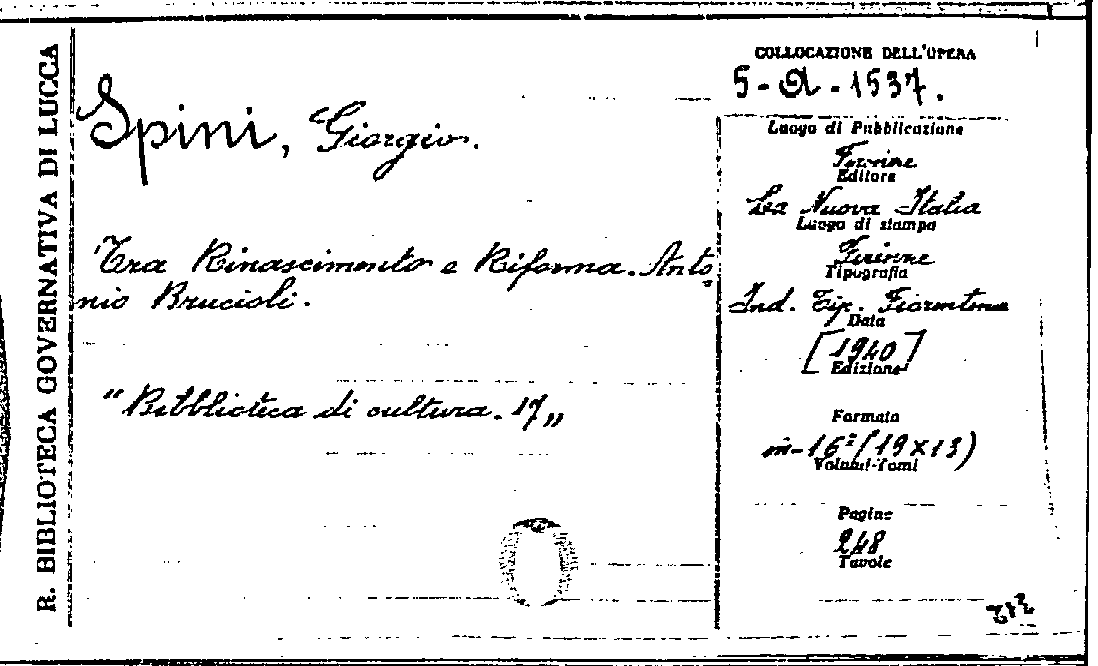 R. BIBLIOTECA GOVERNATIVA DI LUCCA
Spini, Giorgio.
Tra Rinascimento e Riforma. Anto
nio Brucioli.
"Bibblioteca di cultura. 17„
COLLOCAZIONE DELL'OPERA
5-A-1537.
Luogo di Pubblicazione
Firenze
Editore
La Nuova Italia
Luogo di stampa
Firenze
Tipografia
Ind. Tip. Fiorentina
Data
[1940]
Edizione
Formato
in-16º (19×13)
Volumi-Tomi
Pagine
248
Tavole